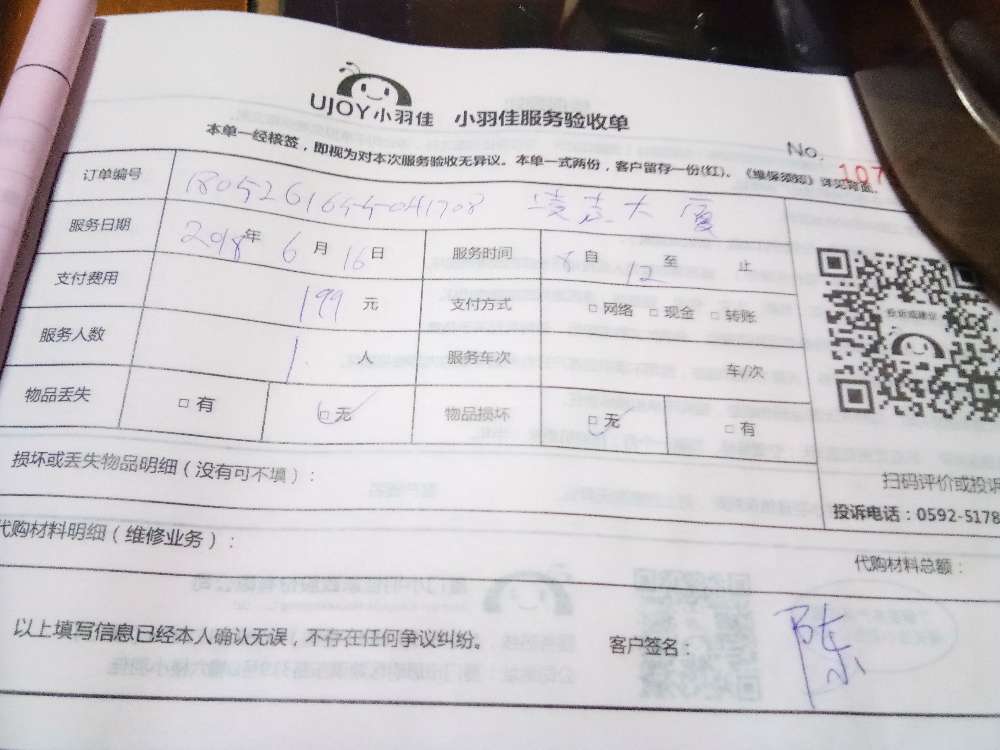 UJOY小羽佳 小羽佳服务验收单
No. 107
本单一经核签，即视为对本次服务验收无异议。本单一式两份，客户留存一份(红)。《维保须知》详见背面。
订单编号
大厦
服务日期 2018年 6月 16日 服务时间 8自 12至 止
支付费用 199元 支付方式 □网络 □现金 □转账
服务人数 1人 服务车次 车/次
物品丢失 □有 □无 物品损坏 □无 □有
欢迎您建议
损坏或丢失物品明细（没有可不填）：
扫码评价或投诉
投诉电话：0592-5178
代购材料明细（维修业务）：
代购材料总额：
以上填写信息已经本人确认无误，不存在任何争议纠纷。 客户签名： 陈